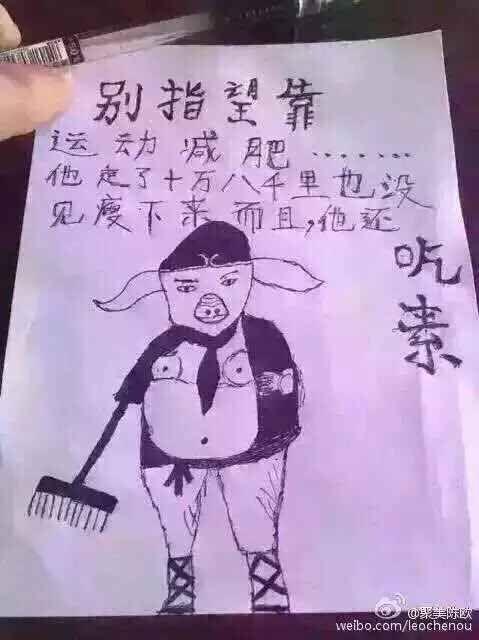 别指望靠
运动减肥.......
他走了十万八千里也没
见瘦下来而且,他还
吃素
@聚美陈欧
weibo.com/leochenou